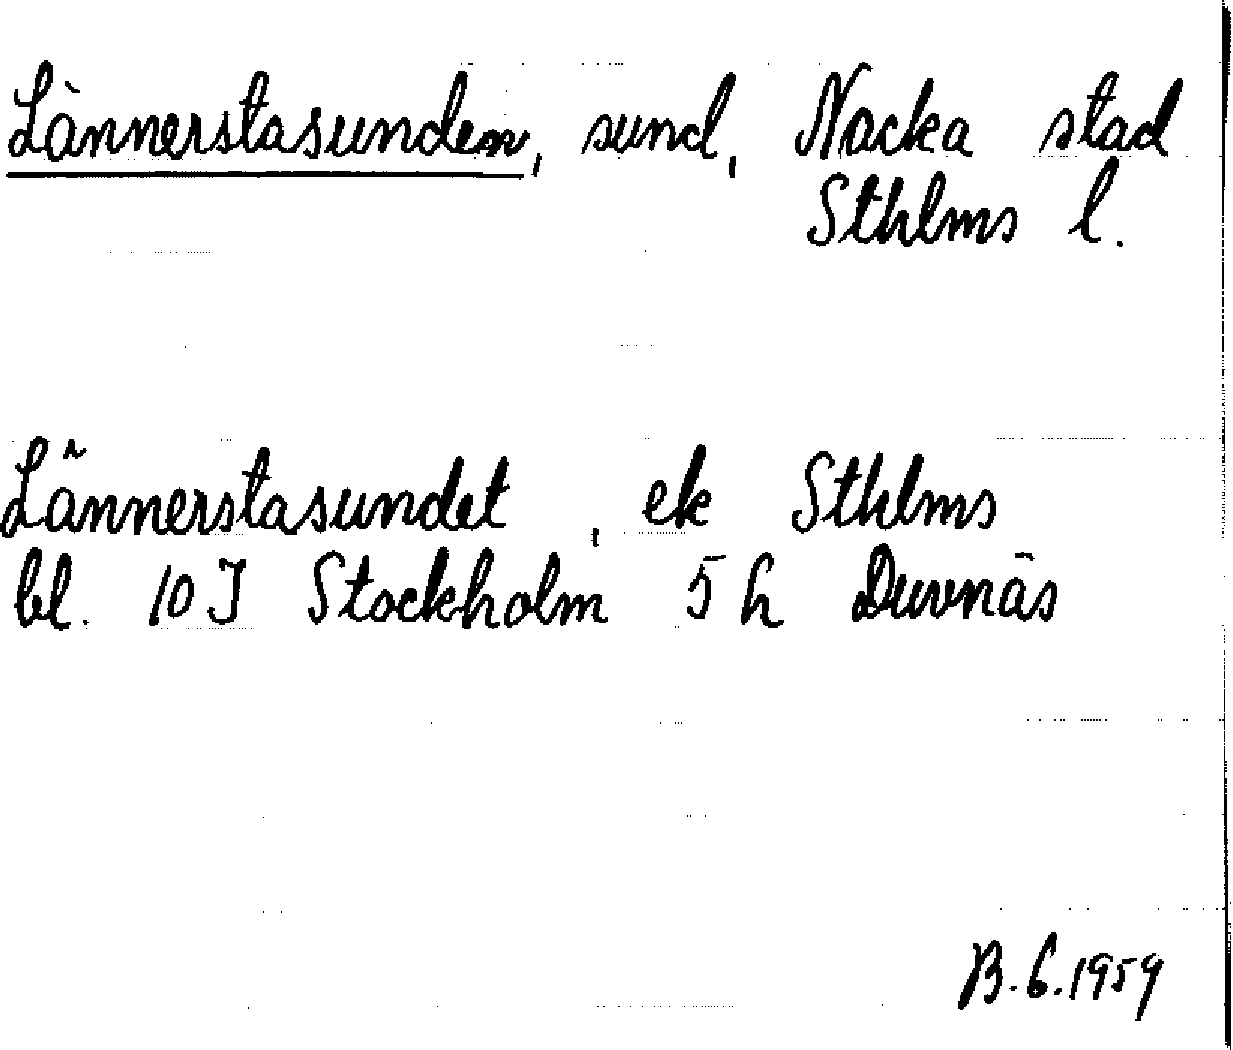 Lännerstasunden, sund, Nacka stad
Sthlms l.
Lännerstasundet, ek Sthlms
bl. 10 J Stockholm 5 h Duvnäs
B.G.1959